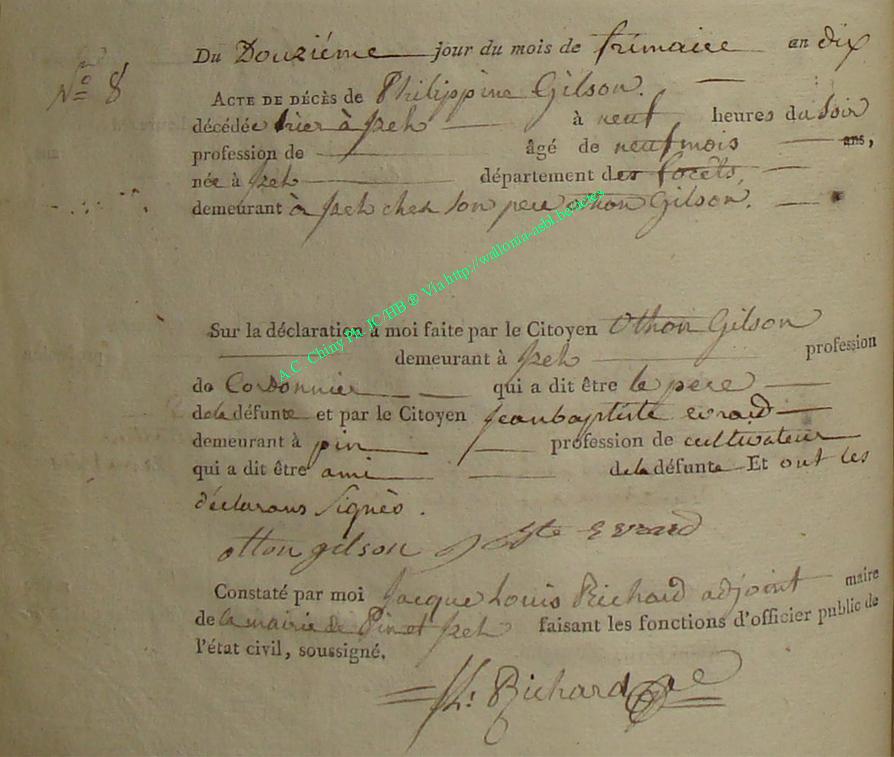 Nº 8
Du Douziéme jour du mois de frimaire an dix
ACTE DE DÉCÈS de Philippine Gilson.
décédée hier à Izeh à neuf heures du soir
profession de âgé de neuf mois ans,
née à Izeh département des forêts,
demeurant à Izeh chez son pere othon Gilson.
Sur la déclaration à moi faite par le Citoyen Othon Gilson
demeurant à Izeh profession
de Cordonnier qui a dit être le pere
de la défunte et par le Citoyen Jeanbaptiste evrard
demeurant à pin profession de cultivateur
qui a dit être ami de la défunte Et ont les
déclarans Signès.
otton gilson J Bste Evrard
Constaté par moi Jacque Louis Richard adjoint maire
de la mairie de Pin et Izeh faisant les fonctions d'officier public de
l'état civil, soussigné.
Richard
A.C. Chiny Ph. JC/HB ® Via http://wallonia-asbl.be/actes